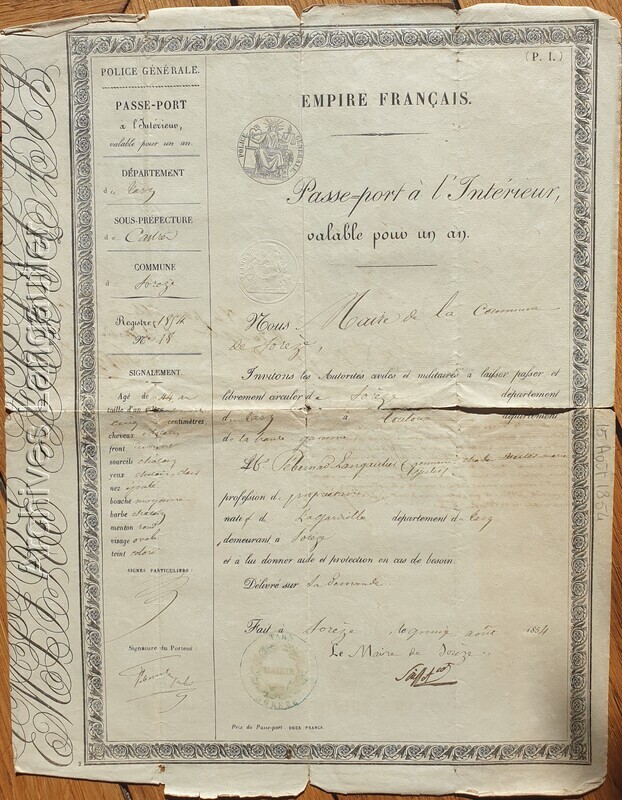 (P. I.)
POLICE GÉNÉRALE.
PASSE-PORT
à l'Intérieur,
valable pour un an.
DÉPARTEMENT
du Tarn
SOUS-PRÉFECTURE
de Castres
COMMUNE
d Sorèze
Registre 1854
N° 18
SIGNALEMENT
Agé de 44 an
taille d'un
centimètres
cheveux
front
sourcils
yeux
nez
bouche moyenne
barbe
menton rond
visage ovale
teint coloré
SIGNES PARTICULIERS:
Signature du Porteur
EMPIRE FRANÇAIS.
POLICE GÉNÉRALE
Passe-port à l'Intérieur,
valable pour un an.
Nous Maire de la Commune
de Sorèze,
Invitons les Autorités civiles et militaires à laisser passer et
librement circuler de Sorèze département
du Tarn à Toulouse département
de la haute garonne
profession de propriétaire
natif de département du Tarn
demeurant à Sorèze
et à lui donner aide et protection en cas de besoin.
Délivré sur sa demande
Fait à Sorèze le quinze août 1854
Le Maire de Sorèze
MAIRIE
Prix du Passe-port: DEUX FRANCS.
2
15 Août 1854
Archives Lengautier